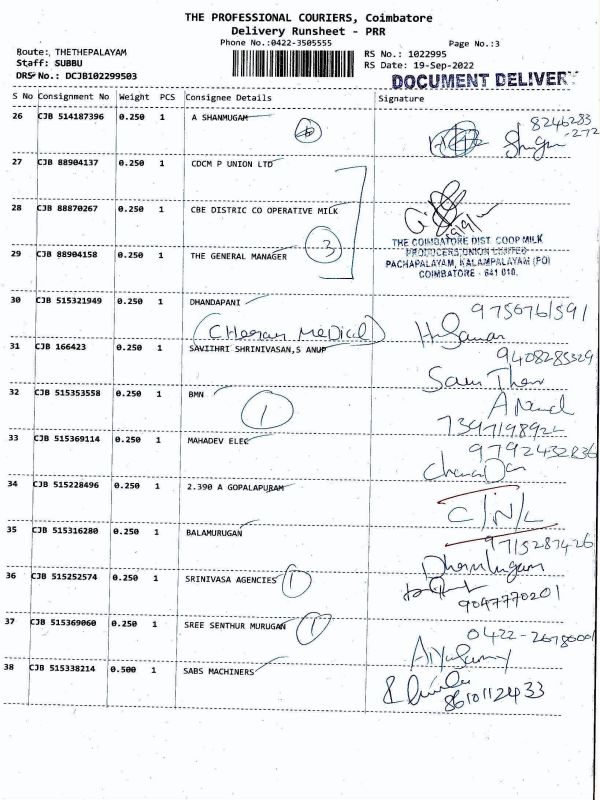 THE PROFESSIONAL COURIERS, Coimbatore
Delivery Runsheet - PRR
Phone No.:0422-3505555
Page No.:3
Route:, THETHEPALAYAM
RS No.: 1022995
Staff: SUBBU
RS Date: 19-Sep-2022
DRS No.: DCJB102299503
DOCUMENT DELIVERY
S No Consignment No Weight PCS Consignee Details Signature
26 CJB 514187396 0.250 1 A SHANMUGAM
8246283
-272
27 CJB 88904137 0.250 1 CDCM P UNION LTD
28 CJB 88870267 0.250 1 CBE DISTRIC CO OPERATIVE MILK
3
THE COIMBATORE DIST. COOP MILK
PRODUCERS UNION LIMITED
29 CJB 88904158 0.250 1 THE GENERAL MANAGER
PACHAPALAYAM, KALAMPALAYAM (PO)
COIMBATORE - 641 010.
30 CJB 515321949 0.250 1 DHANDAPANI
9756761591
31 CJB 166423 0.250 1 SAVITHRI SHRINIVASAN,S ANUP
9408285329
32 CJB 515353558 0.250 1 BMN
1
33 CJB 515369114 0.250 1 MAHADEV ELEC
9792432836
34 CJB 515228496 0.250 1 2.390 A GOPALAPURAM
C/N/L
35 CJB 515316280 0.250 1 BALAMURUGAN
9715287426
36 CJB 515252574 0.250 1 SRINIVASA AGENCIES 1
9047770201
37 CJB 515369060 0.250 1 SREE SENTHUR MURUGAN 1
38 CJB 515338214 0.500 1 SABS MACHINERS